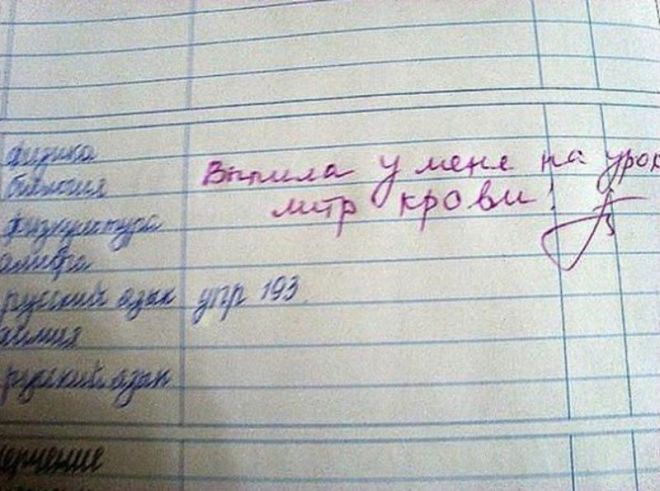 физика
биология
Выпила у меня на урок
литр крови!
физкультура
алгебра
русский язык упр 193.
химия
русский язык
черчение